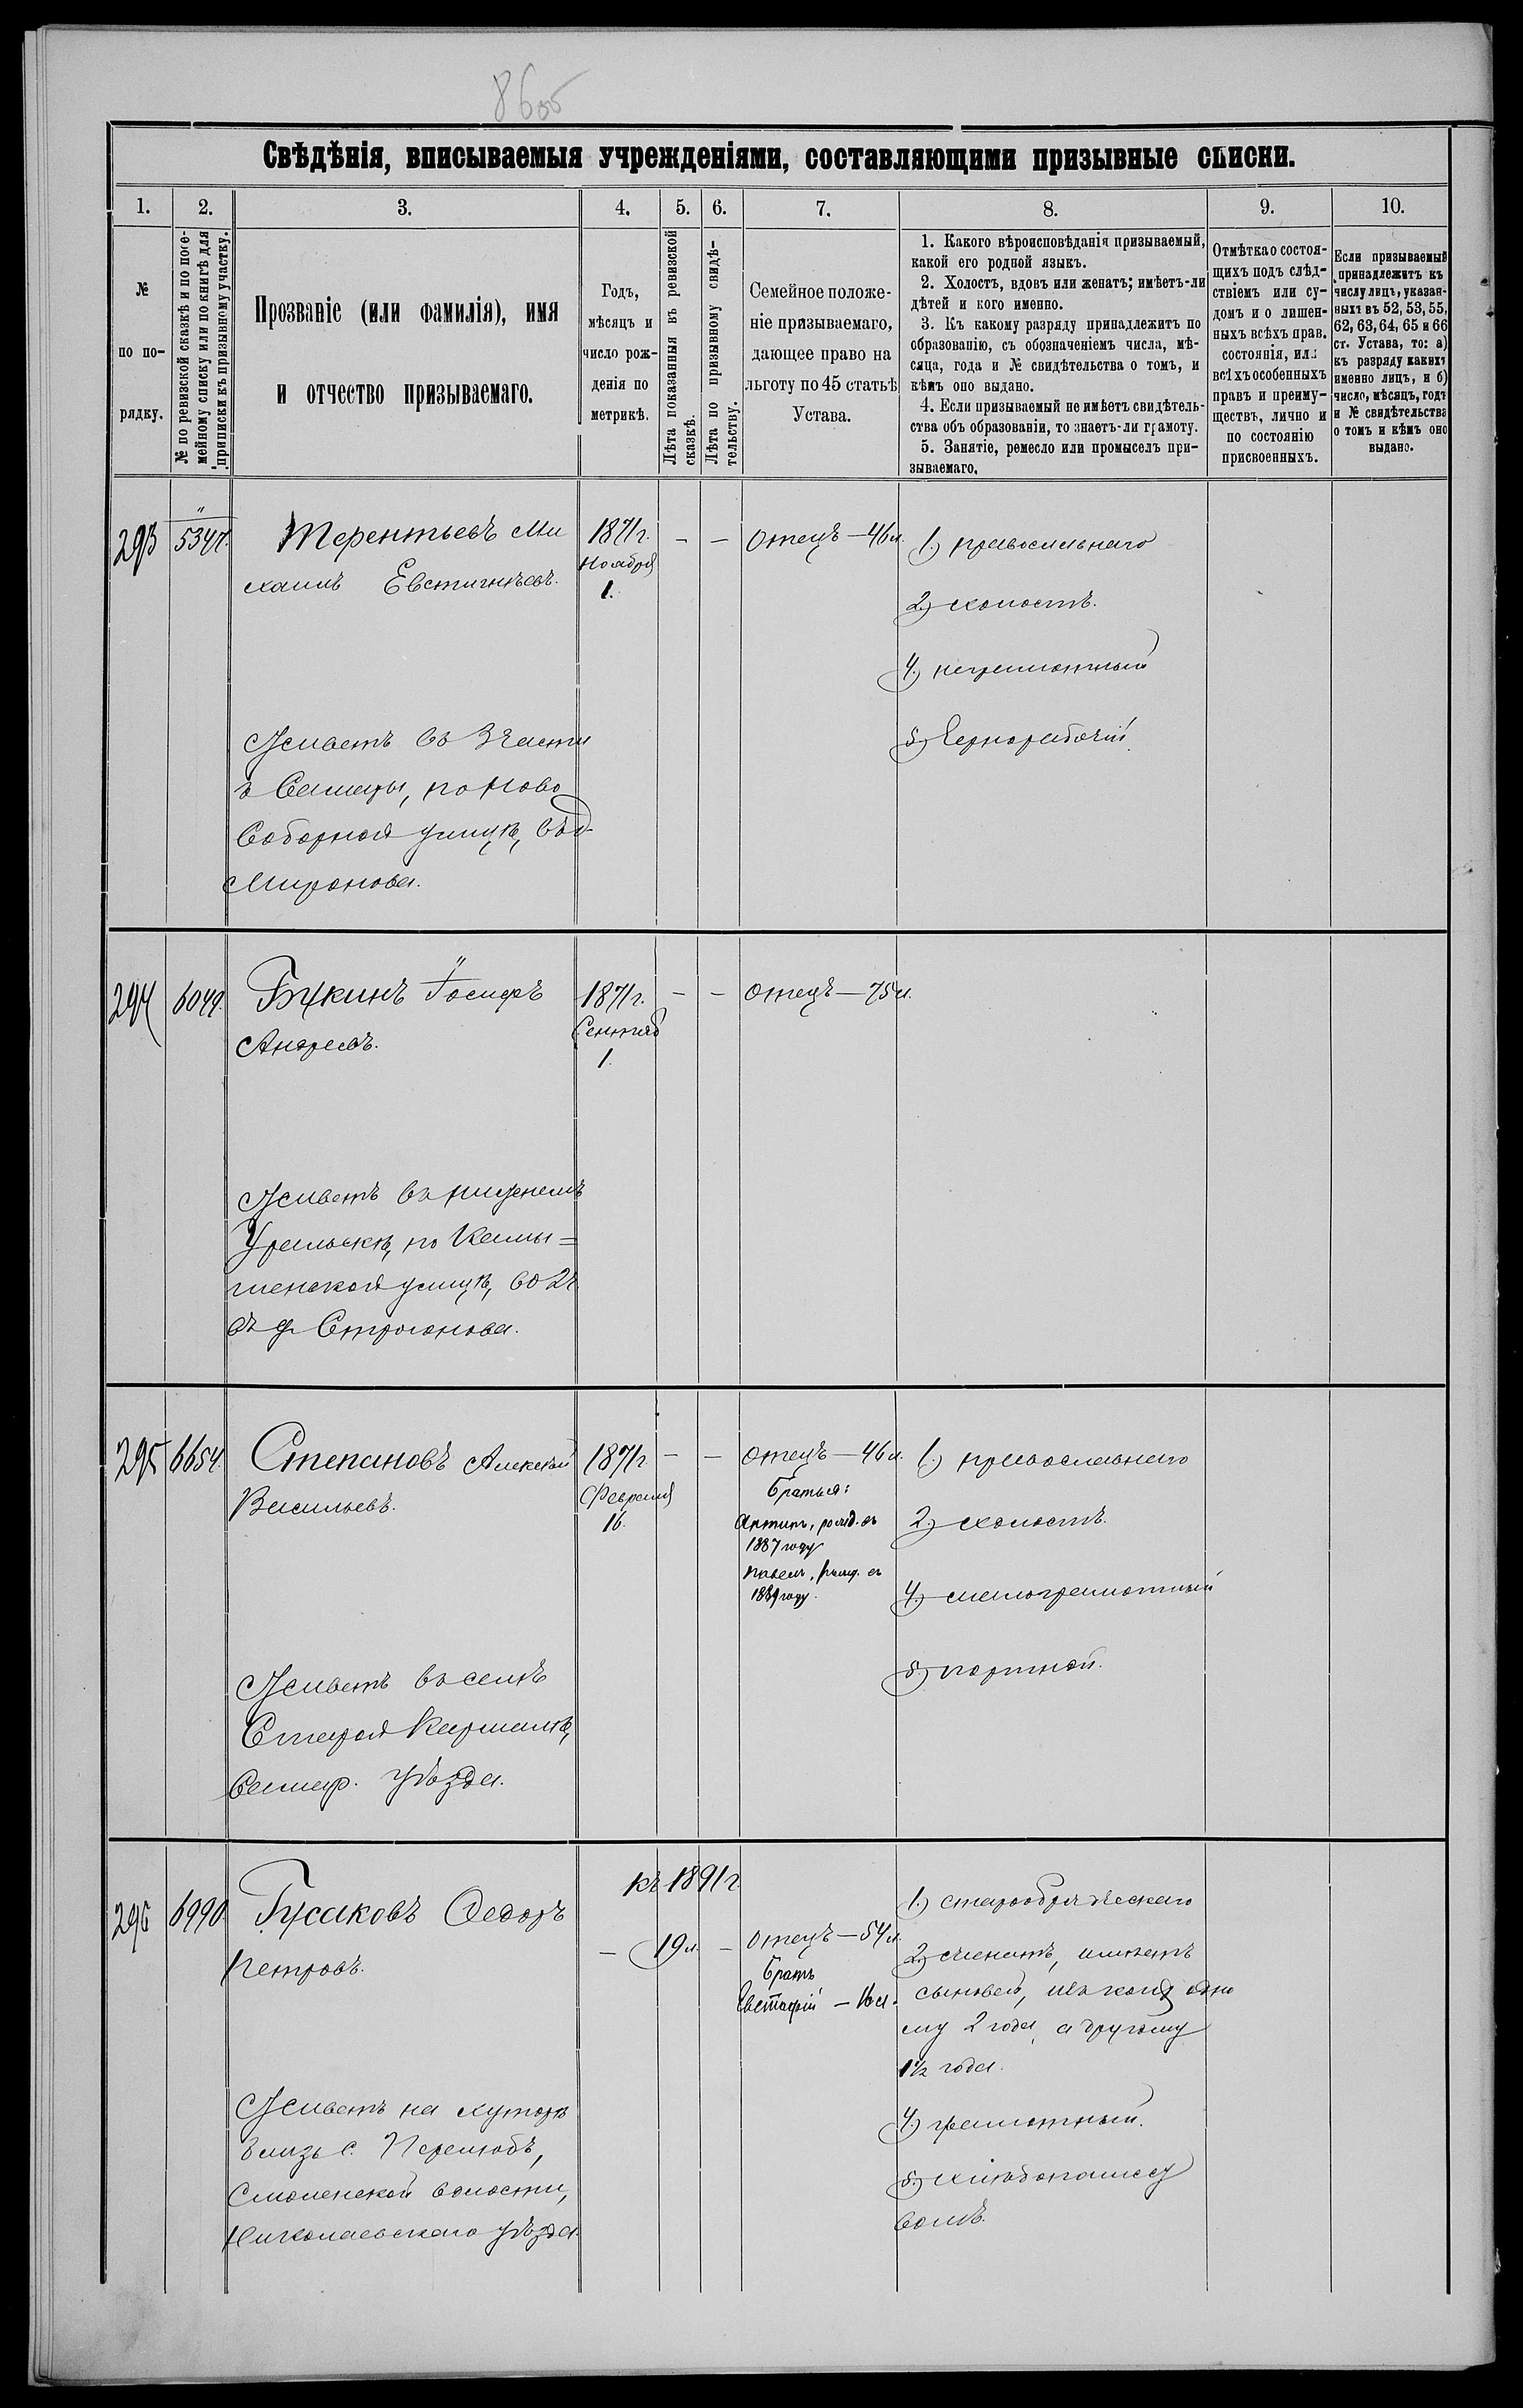 86об
Свѣдѣнія, вписываемыя учрежденіями, составляющими призывные списки.
1.
2.
3.
4.
5.
6.
7.
8.
9.
10.
№
по по-
рядку.
№ по ревизской сказкѣ и по посе-
мейному списку или по книгѣ для
приписки къ призывному участку.
Прозваніе (или фамилія), имя
и отчество призываемаго.
Годъ,
мѣсяцъ и
число рож-
денія по
метрикѣ.
Лѣта показанныя въ ревизской
сказкѣ.
Лѣта по призывному свидѣ-
тельству.
Семейное положе-
ніе призываемаго,
дающее право на
льготу по 45 статьѣ
Устава.
1. Какого вѣроисповѣданія призываемый,
какой его родной языкъ.
2. Холостъ, вдовъ или женатъ; имѣетъ-ли
дѣтей и кого именно.
3. Къ какому разряду принадлежитъ по
образованію, съ обозначеніемъ числа, мѣ-
сяца, года и № свидѣтельства о томъ, и
кѣмъ оно выдано.
4. Если призываемый не имѣетъ свидѣтель-
ства объ образованіи, то знаетъ-ли грамоту.
5. Занятіе, ремесло или промыселъ при-
зываемаго.
Отмѣтка о состоя-
щихъ подъ слѣд-
ствіемъ или су-
домъ и о лишен-
ныхъ всѣхъ прав.
состоянія, или
всѣхъ особенныхъ
правъ и преиму-
ществъ, лично и
по состоянію
присвоенныхъ.
Если призываемый
принадлежитъ къ
числу лицъ, указан-
ныхъ въ 52, 53, 55,
62, 63, 64, 65 и 66
ст. Устава, то: а)
къ разряду какихъ
именно лицъ, и б)
число, мѣсяцъ, годъ
и № свидѣтельства
о томъ и кѣмъ оно
выдано.
293
"
5347.
Терентьевъ Ми
хаилъ Евстигнѣевъ.
1871г.
Ноября
1.
—
—
отецъ — 46л.
1.) православнаго
2.) холостъ.
4.) неграмотный
5.) Чернорабочій.
Живетъ въ 3 части
г. Самары, по Ново
Соборной улицѣ, въ д.
Миронова.
294
6049.
Букинъ Іосифъ
Андреевъ.
1871г.
Сентяб
1.
—
—
отецъ — 75л.
Живетъ въ
Уральскѣ, по Камы=
шенской улицѣ, во 2ч
въ д. Строганова.
295
6654.
Степановъ Алексѣй
Васильевъ.
1871г.
Февраля
16.
—
—
отецъ — 46л.
братья:
Антипъ, рожд. въ
1887 году
Павелъ, рожд. въ
году.
1.) православнаго
2.) холостъ.
4.) малограмотный
5.) портной.
Живетъ въ селѣ
Старой Кармалѣ,
Самар. уѣзда.
296
6990
Гусаковъ Федоръ
Петровъ.
къ 1891г
—
19л.
—
отецъ — 54л.
братъ
Евстафій — 16л.
1.) старообрядческаго
2.) женатъ, имѣетъ
сыновей, изъ коихъ одно
му 2 года, а другому
1½ года.
4.) грамотный.
5.) хлѣбопашест
вомъ.
Живетъ на хуторѣ
близь с. Перелюбъ,
Смоленской волости,
Николаевскаго уѣзда.